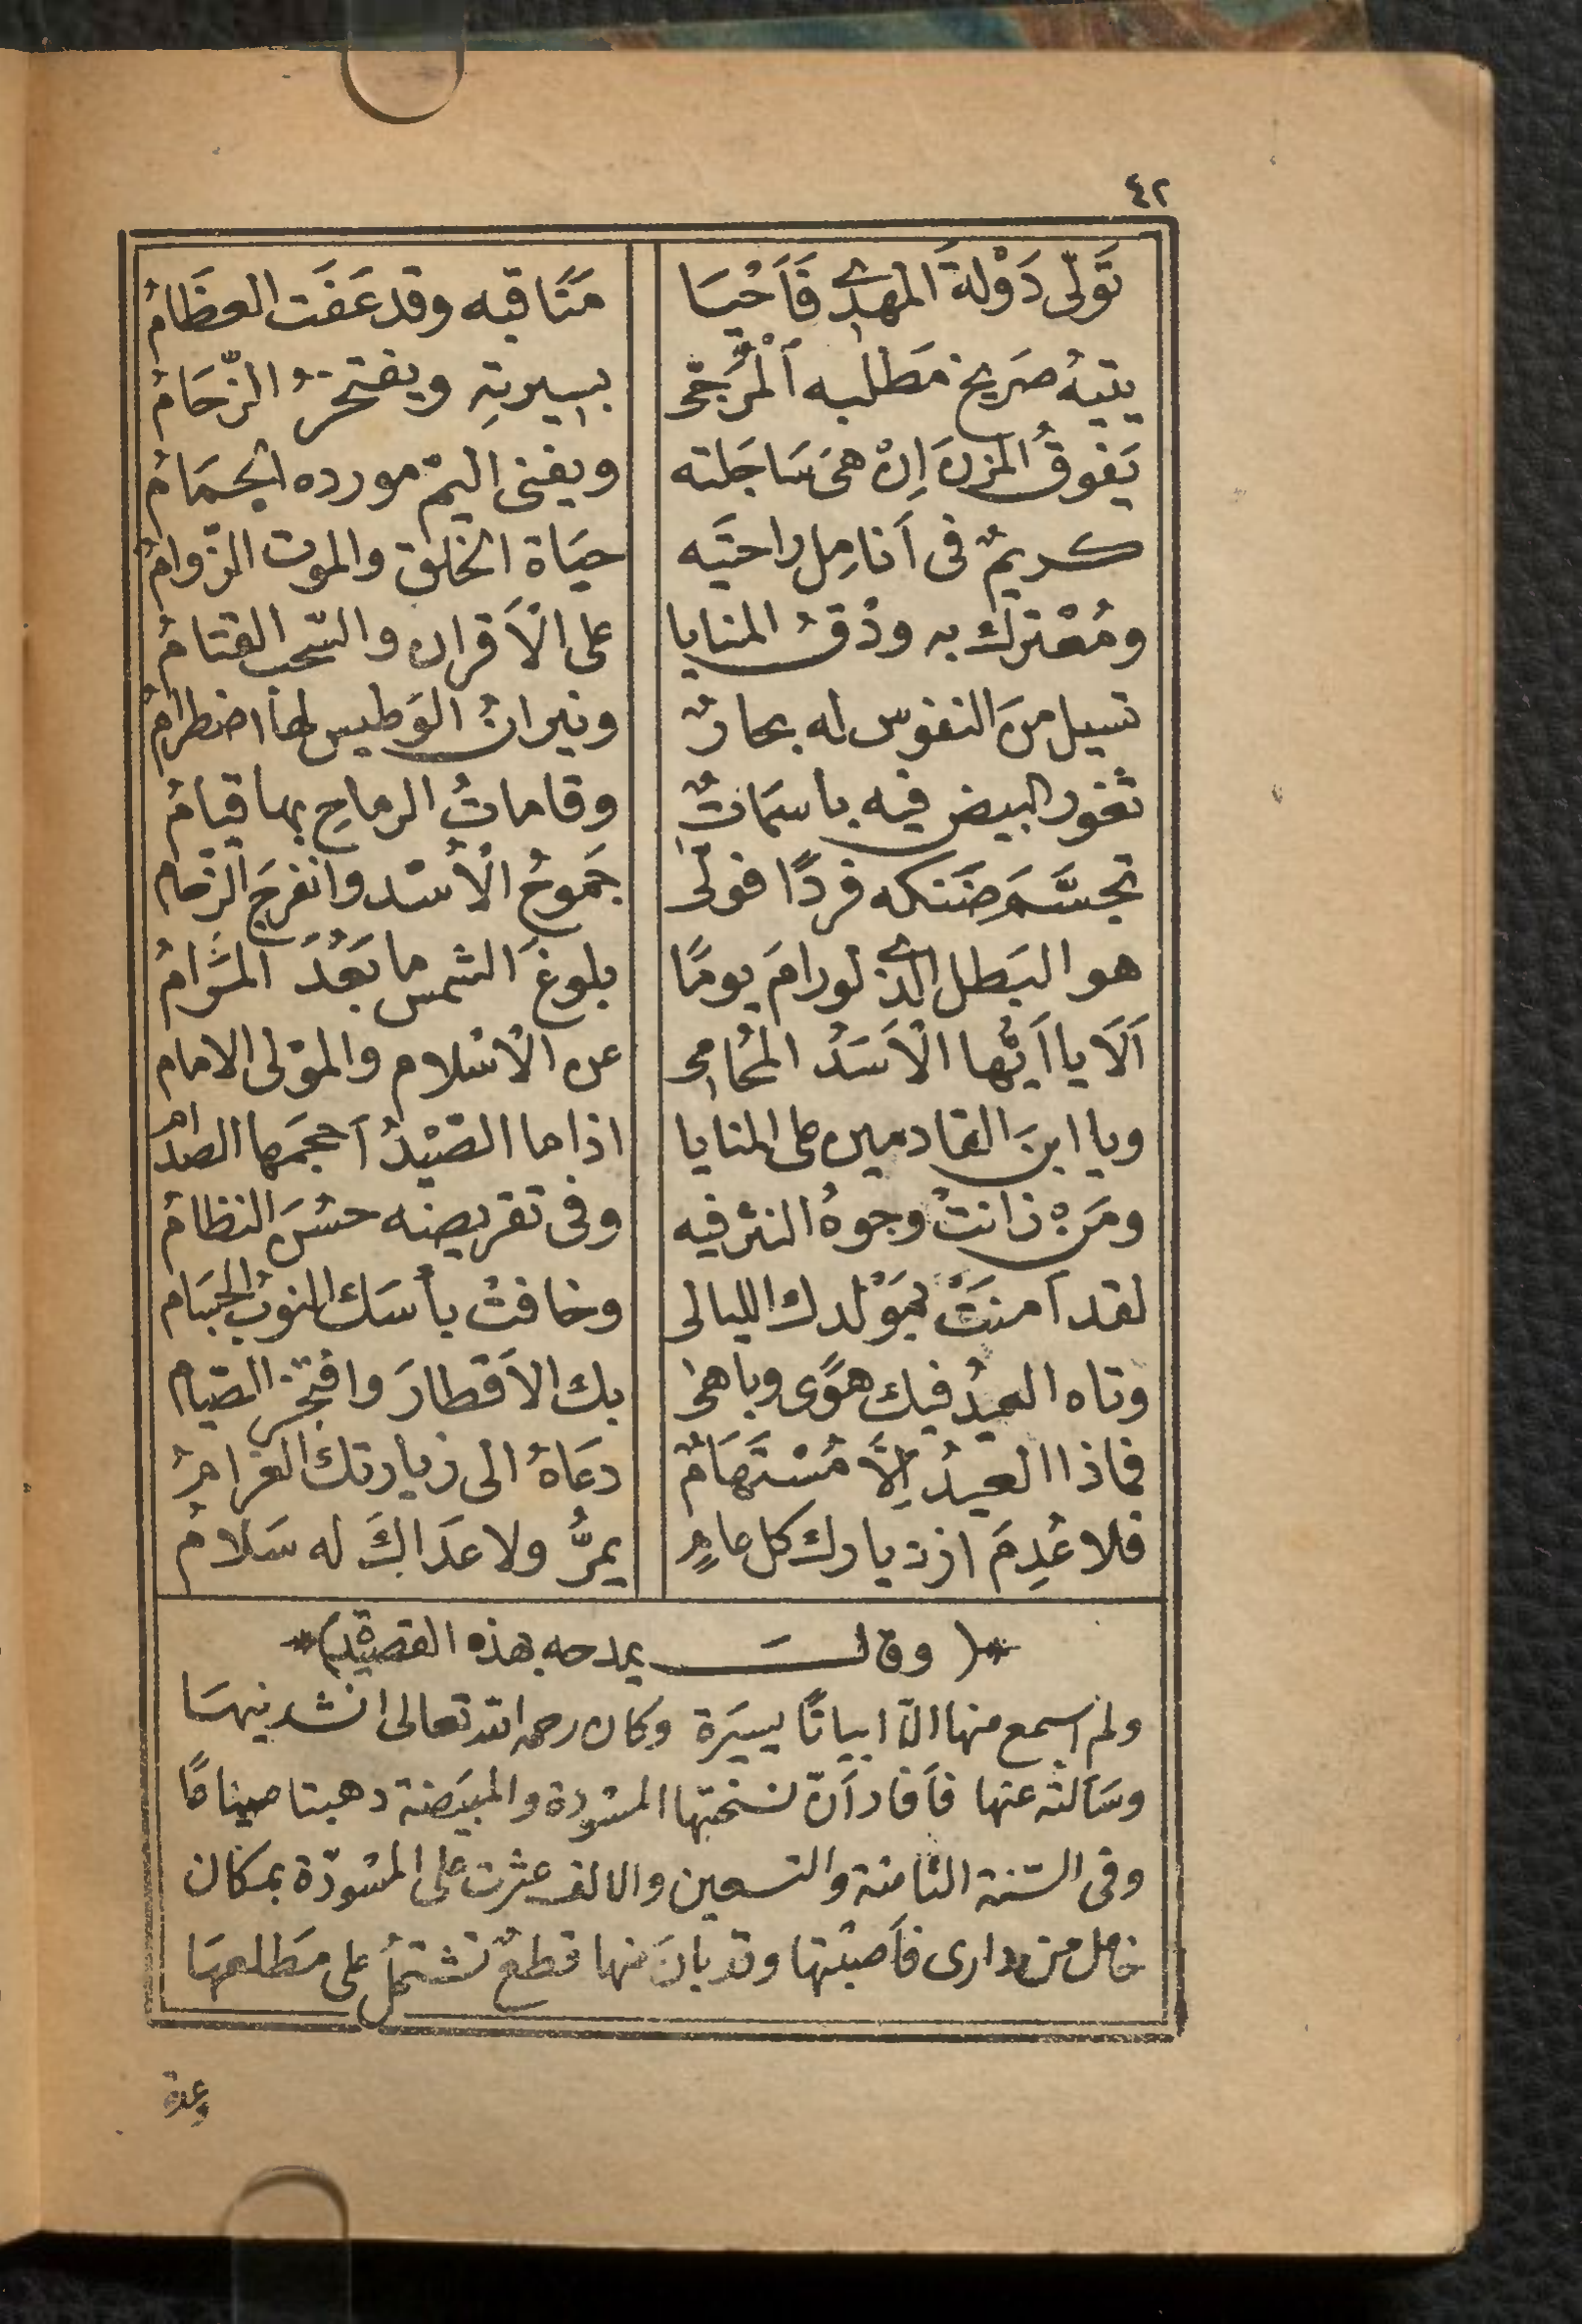 ٤٢
تَوَلّى دَوْلةَ المهدي فَاَحْيَا مَنَاقبه وقد عَفَت العظَامُ
يتيهُ ضريح مَطلبه اَلْمُرَجّى بسيرتِهِ ويفتخرُ الرّخَامُ
يَفوقُ المزن َ اِنْ هىَ سَاجَلته ويفنى اليمّ مورده الجمَامُ
كريمٌ فى اَنامِل راحتَيه حيَاة الخلق والموت الزوامُ
ومُعْترك به وذقُ المنايا على الْاَقران والسّحب القتامُ
تسيل منَ النفوس له بحارٌ ونيرانُ الوَطيس لها اضطرامُ
ثغور البيض فيه باسمَاتٌ وقاماتُ الرماحِ بها قيامُ
تجسَّمَ ضَنكه فردًا فولّى جَموحُ الْاُسْد وانفرَجَ الزّحام
هو البَطل الذي لورامَ يومًا بلوغَ الشمس ما بَعُدَ المَرَامُ
اَلَا يا اَيّها الْاَسَدُ المُحامى عن الْاسْلام والمَوْلى الامام
ويا ابنَ القادمين على المنايا اذا ما الصّيْدُ اَحجمَها الصدامُ
ومَنْ زانتْ وجوهُ النثر فيه وفى تقريضه حسُنَ النظامُ
لقد اَمنتْ بمَوْلدك الليالى وخافتْ بأسَك النوبُ الجسَام
وتاه العيدُ فيك هوًى وباهى بك الاَقطارَ وافتخر الصّيام
فماذا العيدُ اِلّا مُسْتَهَامٌ دعَاهُ الى زيارتك الغرامُ
فلا عُدِمَ ازديارك كل عامٍ يمرُّ ولا عدَاكَ له سَلامُ
﴿ وقالَ يمدحه بهذه القصيدة ﴾
ولم اسمع منها الّا ابياتًا يسيَرة وكان رحمه الله تعالى انشدنيهَا
وسَألته عنها فاَفاد اَنّ نسختها المسْودة والمبيَضة ذهبتا ضياعًا
وفى السّنة الثامنة والتسعين والالف عثرت على المسْودّة بمكان
خامل من دارى فاَصبْتها وقد بانَ منها قطعٌ تشتملُ على مَطلعهَا
وعدة